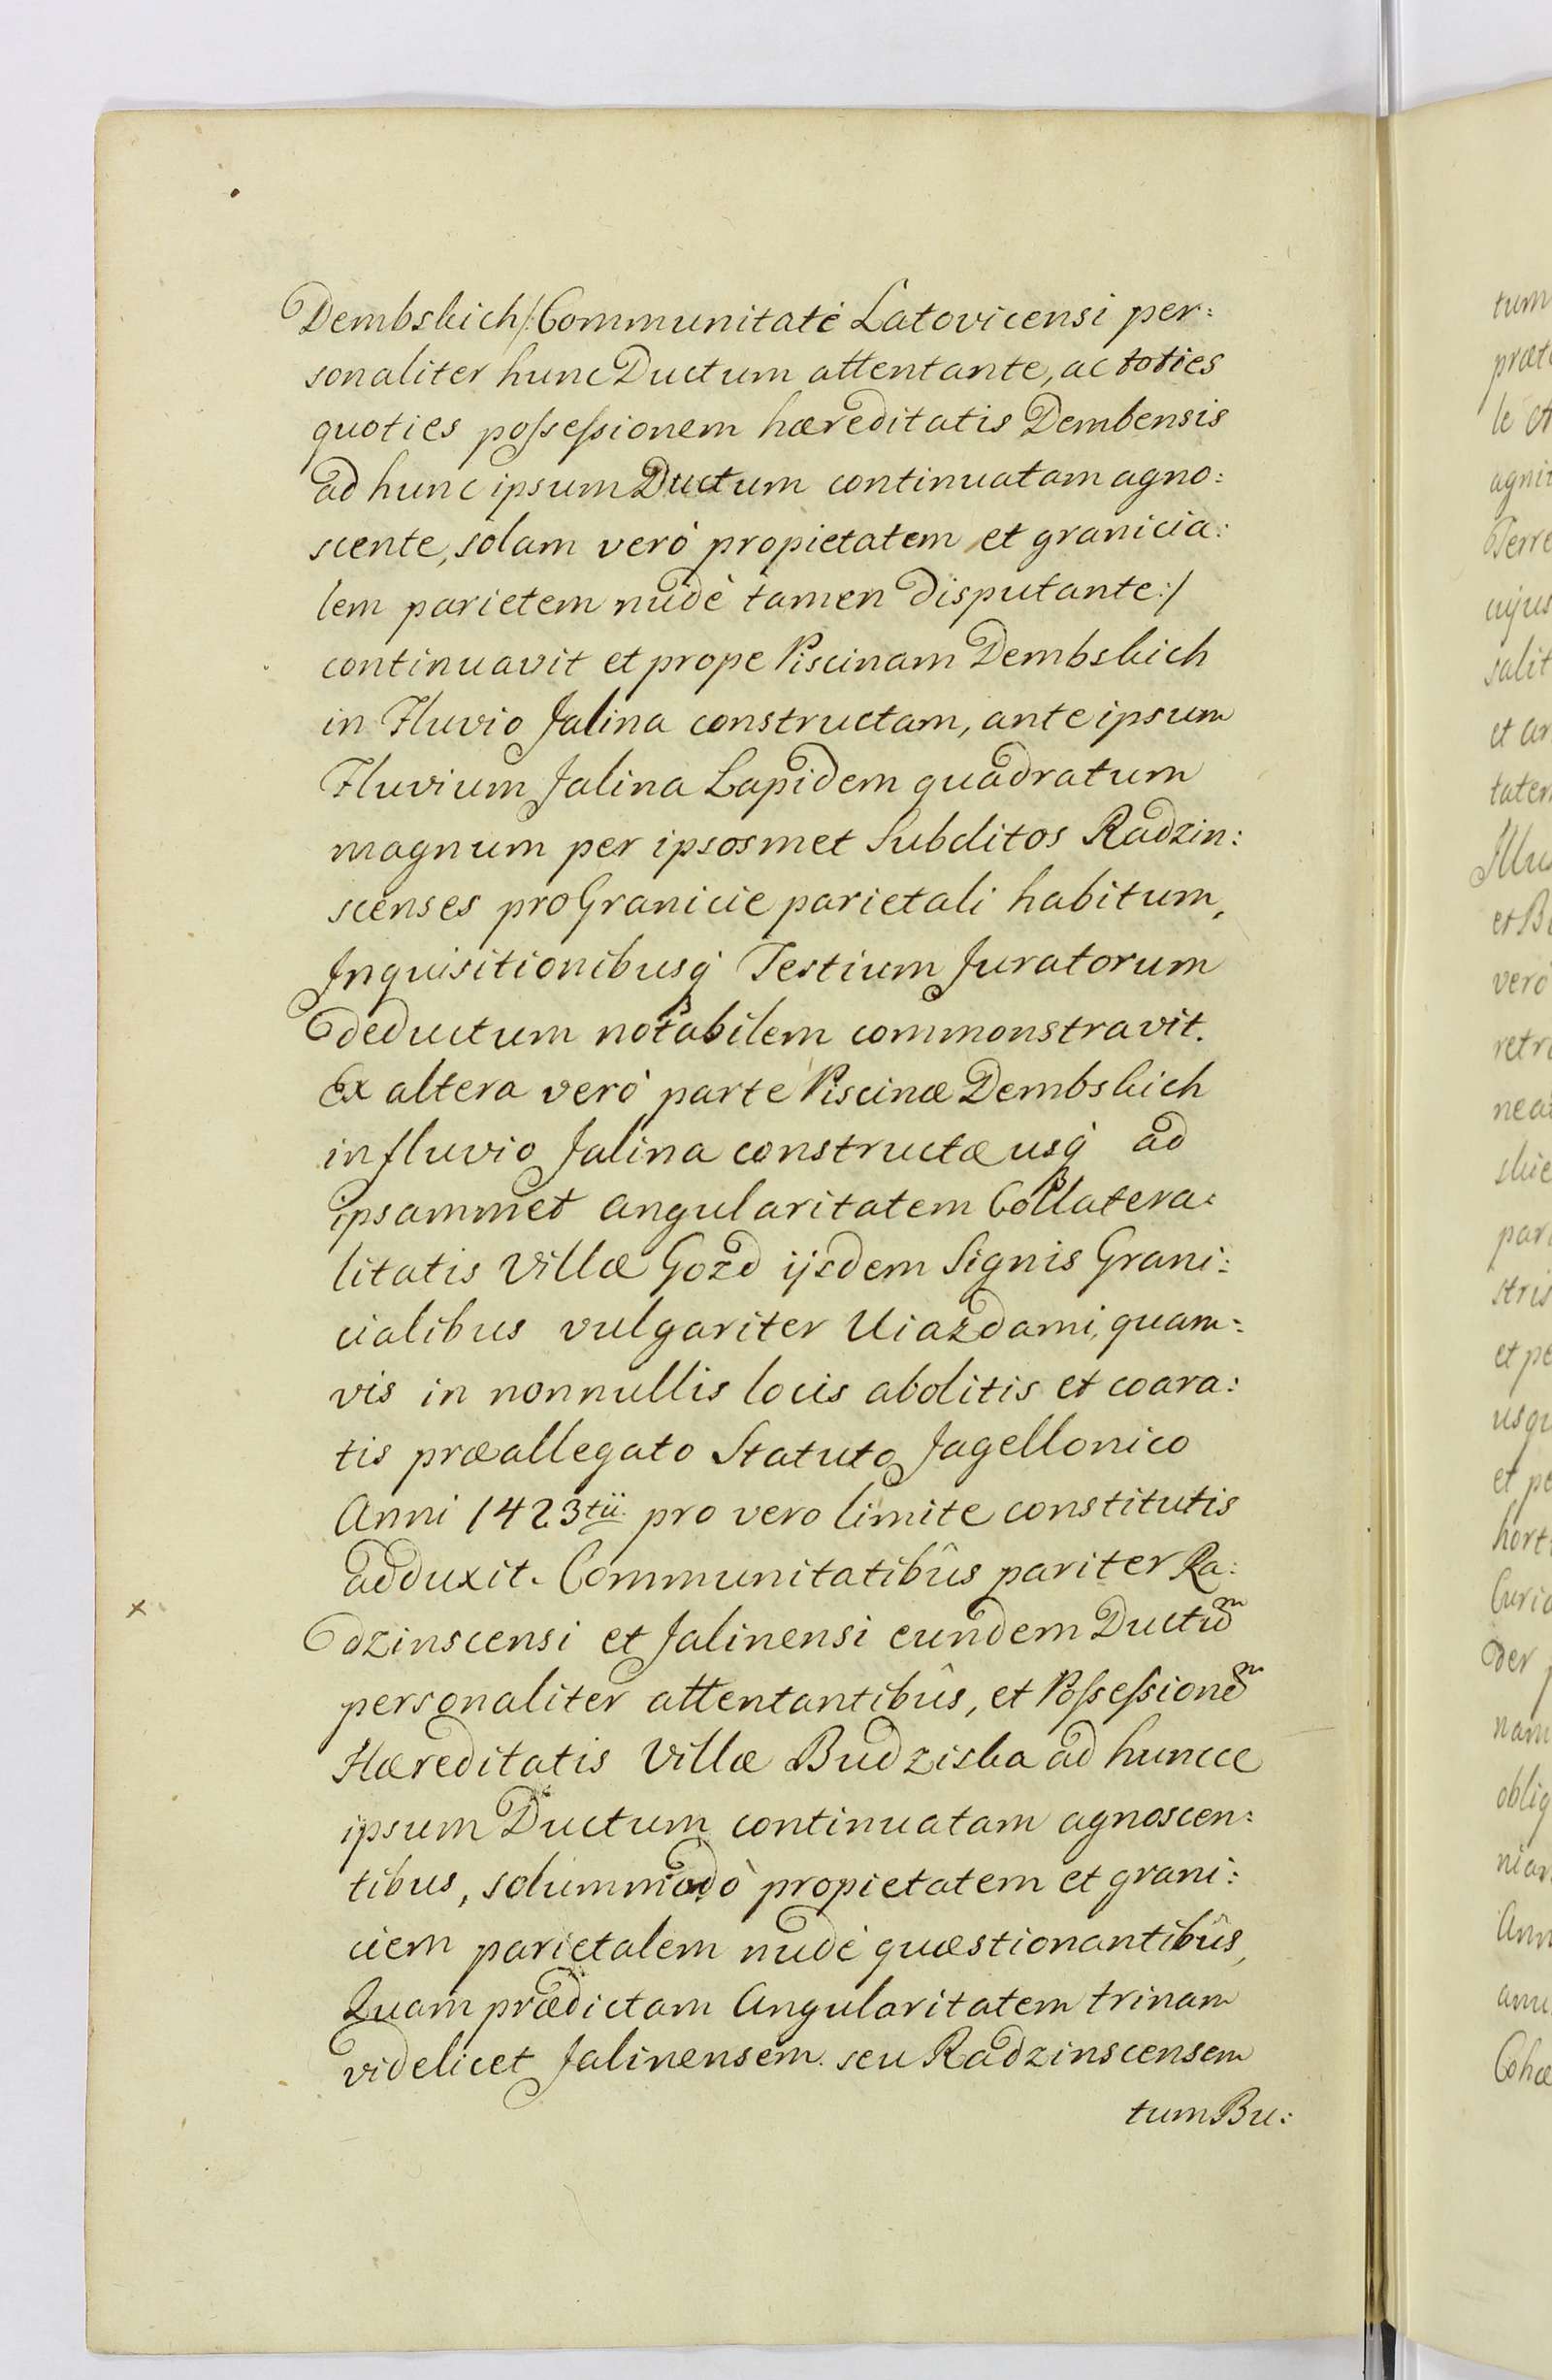 Dembskich /: Communitate Latovicensi per:
sonaliter hunc Ductum attentante, ac toties
quoties possessionem hæreditatis Dembensis
ad hunc ipsum Ductum continuatam agno:
scente, solam verò propietatem et granicia:
lem parietem nudè tamen disputante :/
continuavit et prope Piscinam Dembskich
in Fluvio Jalina constructam, ante ipsum
Fluvium Jalina Lapidem quadratum
magnum per ipsosmet Subditos Radzin:
scenses pro Granicie parietali habitum,
Inquisitionibusq́ Testium Juratorum
deductum notabilem commonstravit.
Ex altera verò parte Piscinæ Dembskich
in fluvio Jalina constructæ usq́ ad
ipsammet angularitatem Collatera:
litatis Villæ Gozd ijsdem Signis Grani:
cialibus vulgariter Uiazdami, quam:
vis in nonnullis locis abolitis et coara:
tis præallegato Statuto Jagellonico
Anni 1423tii pro vero limite constitutis
adduxit. Communitatibûs pariter Ra:
dzinscensi et Jalinensi eundem Ductũm
personaliter attentantibûs, et Possessionem
Hæreditatis Villæ Budziska ad huncce
ipsum Ductum continuatam agnoscen:
tibus, solummodò propietatem et grani:
ciem parietalem nudè quæstionantibûs,
Quam prædictam Angularitatem trinam
videlicet Jalinensem seu Radzinscensem
tum Bu:
tum
le et
et ar
verò
et pe
et pe